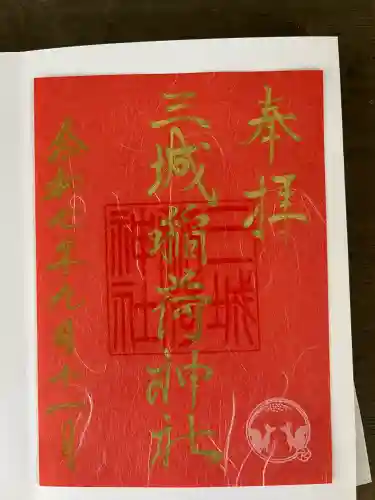 奉拝
三城稲荷神社
令和七年九月十一日
三城
稲荷
神社